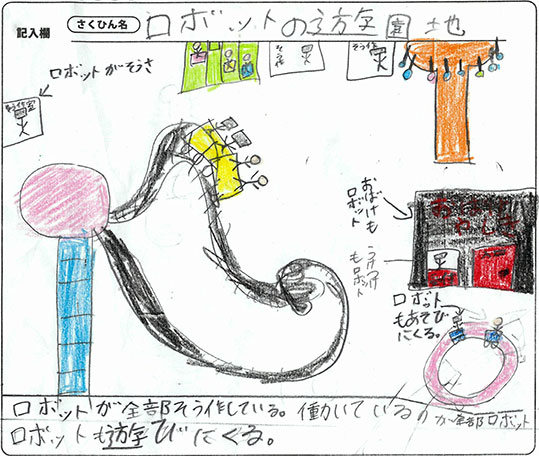 記入欄
さくひん名
ロボットの遊園地
ロボットがそうさ
そう作室
そう作
おばけやしき
おばけも
ロボット
うけつけ
もロボット
ロボット
もあそび
にくる。
ロボットが全部そう作している。働いているのが全部ロボット
ロボットも遊びにくる。